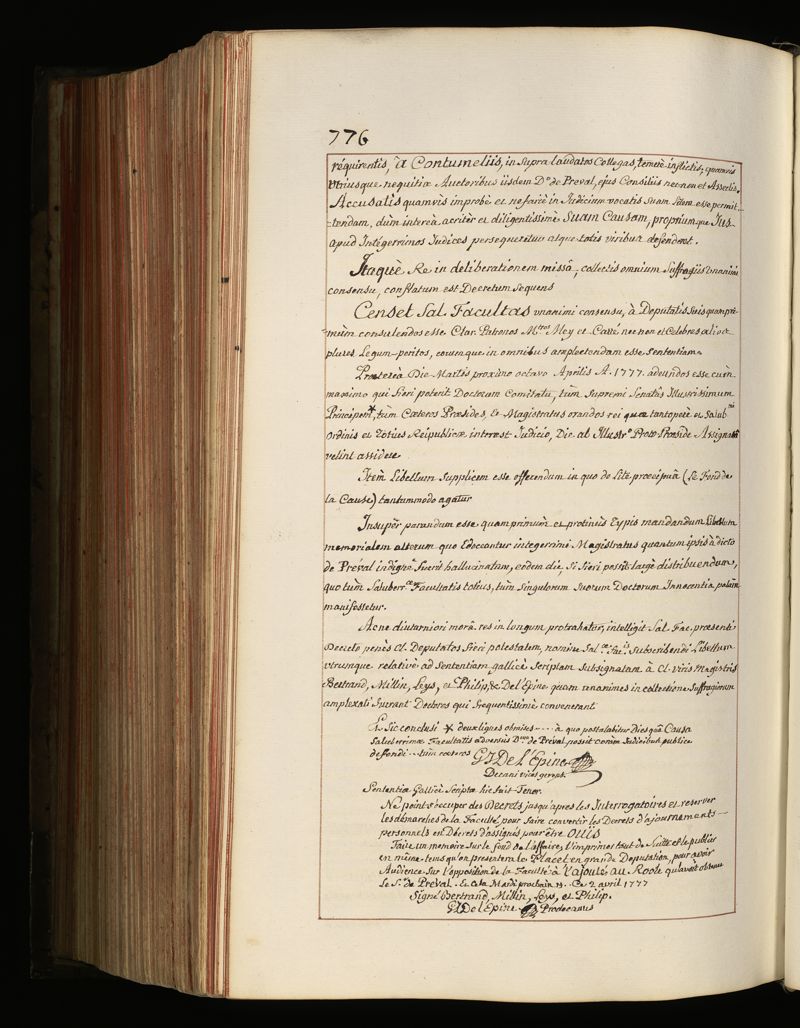 776
requirentis, a Contumeliis, in supra laudatos Collegas, temerè inflictis; quamvis
Utriusque nequitiæ Auctoribus iisdem Do. de Preval, ejus Consiliis necnon et Asseclis,
Accusatis quamvis improbè et nefariè in Judicium vocatis suam litem esse permit-
-tendam, dum intereà acriter et diligentissimè suam Causam, propriumque Jus
apud Integerrimos Judices persequeretur atque totis viribus defenderet.
Itaquè Re in deliberationem missâ, collectis omnium Suffragiis Unanimi
consensu, conflatum est Decretum sequens
Censet Sal. Facultas unanimi consensu, à Deputatis suis quampri-
-mùm consulendos esse Clar. Patronos Mros Mey et Carré necnon et Celebres alios
plures Legum-peritos, eorumque in omnibus amplectendam esse sententiam.
Prætereà Die Martis proximo octavo Aprilis A. 1777. adeundos esse cum
maximo qui fieri poterit Doctorum Comitatu, tùm Supremi Senatûs Illustrissimum
Principem*, tùm Cæteros Præsides, et Magistratus orandos rei quæ tantoperè et Salub.mi
Ordinis et totius Reipublicæ interest Judicio, Die ab Illustr.o Proto Præside Assignatâ
velint assidere.
Item Libellum supplicem esse offerendum in quo de lite præcipuâ (le Fond de
la Cause) tantummodo agatur
Insuper parandum esse quamprimùm et protinus typis mandandum Libellum
memorialem alterum quo Edoceantur integerrimi Magistratus quantum ipsis à dicto
de Préval indignè fuerit hallucinatum, eodem die, si fieri possit largè distribuendum,
quo tùm Saluberr.æ Facultatis totius, tùm singulorum suorum Doctorum Innocentia palàm
manifestetur.
Ac ne diuturniori morâ res in longum protrahatur, intelligit Sal. Fac. præsenti
Decreto penès Cl. Deputatos fieri potestatem, nomine Sal.æ Fac.is subscribendi Libellum
utrumque relativè ad sententiam gallicè scriptam subsignatam à Cl. viris Magistris
Bertrand, Millin, Leys, et Philip, & De l'Epine quam unanimes in collectione suffragiorum
amplexati fuerant Doctores qui frequentissimè convenerant
Et sic conclusi * deux lignes obmises .... à quo postulabitur dies quâ Causa
Saluberrimæ Facultatis adversùs Dnum de Preval possit coràm Judicibus publicè
defendi -- tum cæteros GJ De l'Epine
Decani vices gerens.
Sententiæ Gallicè scriptæ hic fuit Tenor.
Ne point s'occuper des Decrets jusqu'apres les Interrogatoires et reserver
les démarches de la Faculté, pour faire convertir les Decrets d'ajournements
personnels en Décrets d'assignés pour être Ouïs
Faire un memoire sur le fond de l'affaire, l'imprimer tout de suite et le publier
en même tems qu'on presentera le Placet en grande Deputation, pour avoir
Audience sur l'opposition de la Faculté à l'ajouté au Role qu'avoit obtenu
le Sr. de Preval. Ce 2 avril 1777
Signé Bertrand, Millin, Leys, et Philip.
GJ De l'Epine Prodecanus